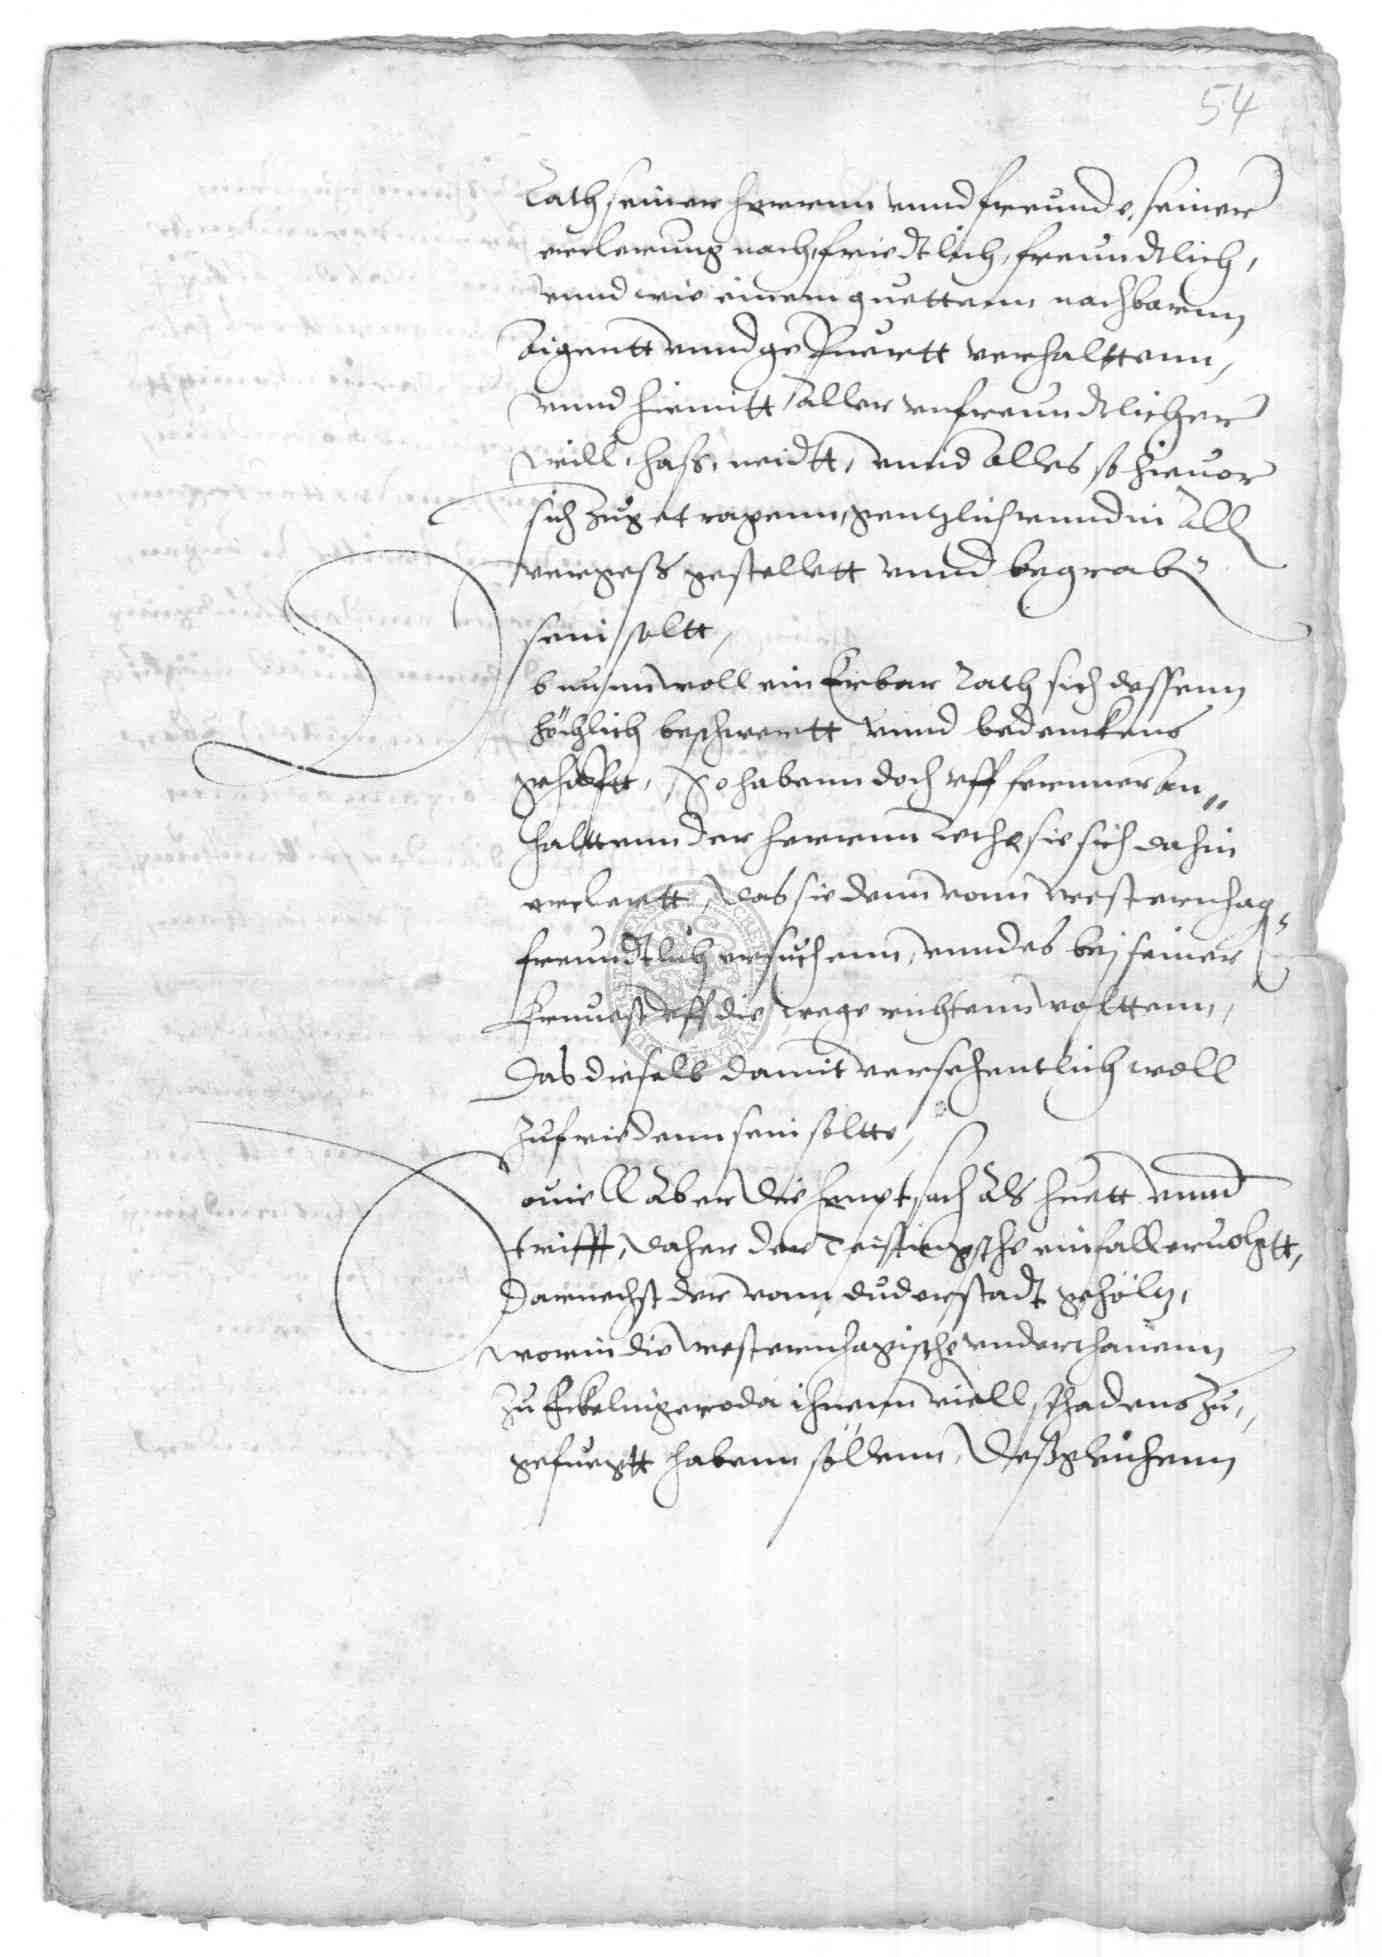 54
Rath seiner herrnn vnnd freunde, seiner
ercklerung nach, friedtlich, freundtlich,
vnnd wie einem guettenn nachbarnn
eigentt vnnd gepuertt verhalttenn,
vnnd hiemitt aller vnfreundtlicher
will, haß, neidtt, vnnd alles so hieuor
sich zugetragenn, gentzlich vnnd in all
vergeß gestellett vnnd begrab
sein soltt,
Ob nunn woll ein Erbar Rath sich dessenn
höchlich beschwertt vnnd bedenckens
gehaptt, So habenn doch vff fernner an
halttenn der herrnn Rethe sie sich dahin
erclertt, das sie denn vonn Westernhag
freundtlich ersuchenn, vnnd es bej seiner
Ernuest vff die wege richtenn wolttenn,
Das dieselb damit versehentlich woll
zufriedenn sein soltte,
Souiell aber die heuptsach als huett vnnd
trifft, daher der Teistingische einfall eruolgtt,
Darnechst der vonn Duderstadt gehöltz,
worin die Westernhagische vnderthanenn
zu Eckelingeroda ihnenn viell schadens zu
gefuegtt habenn söllenn, Deßgleichenn